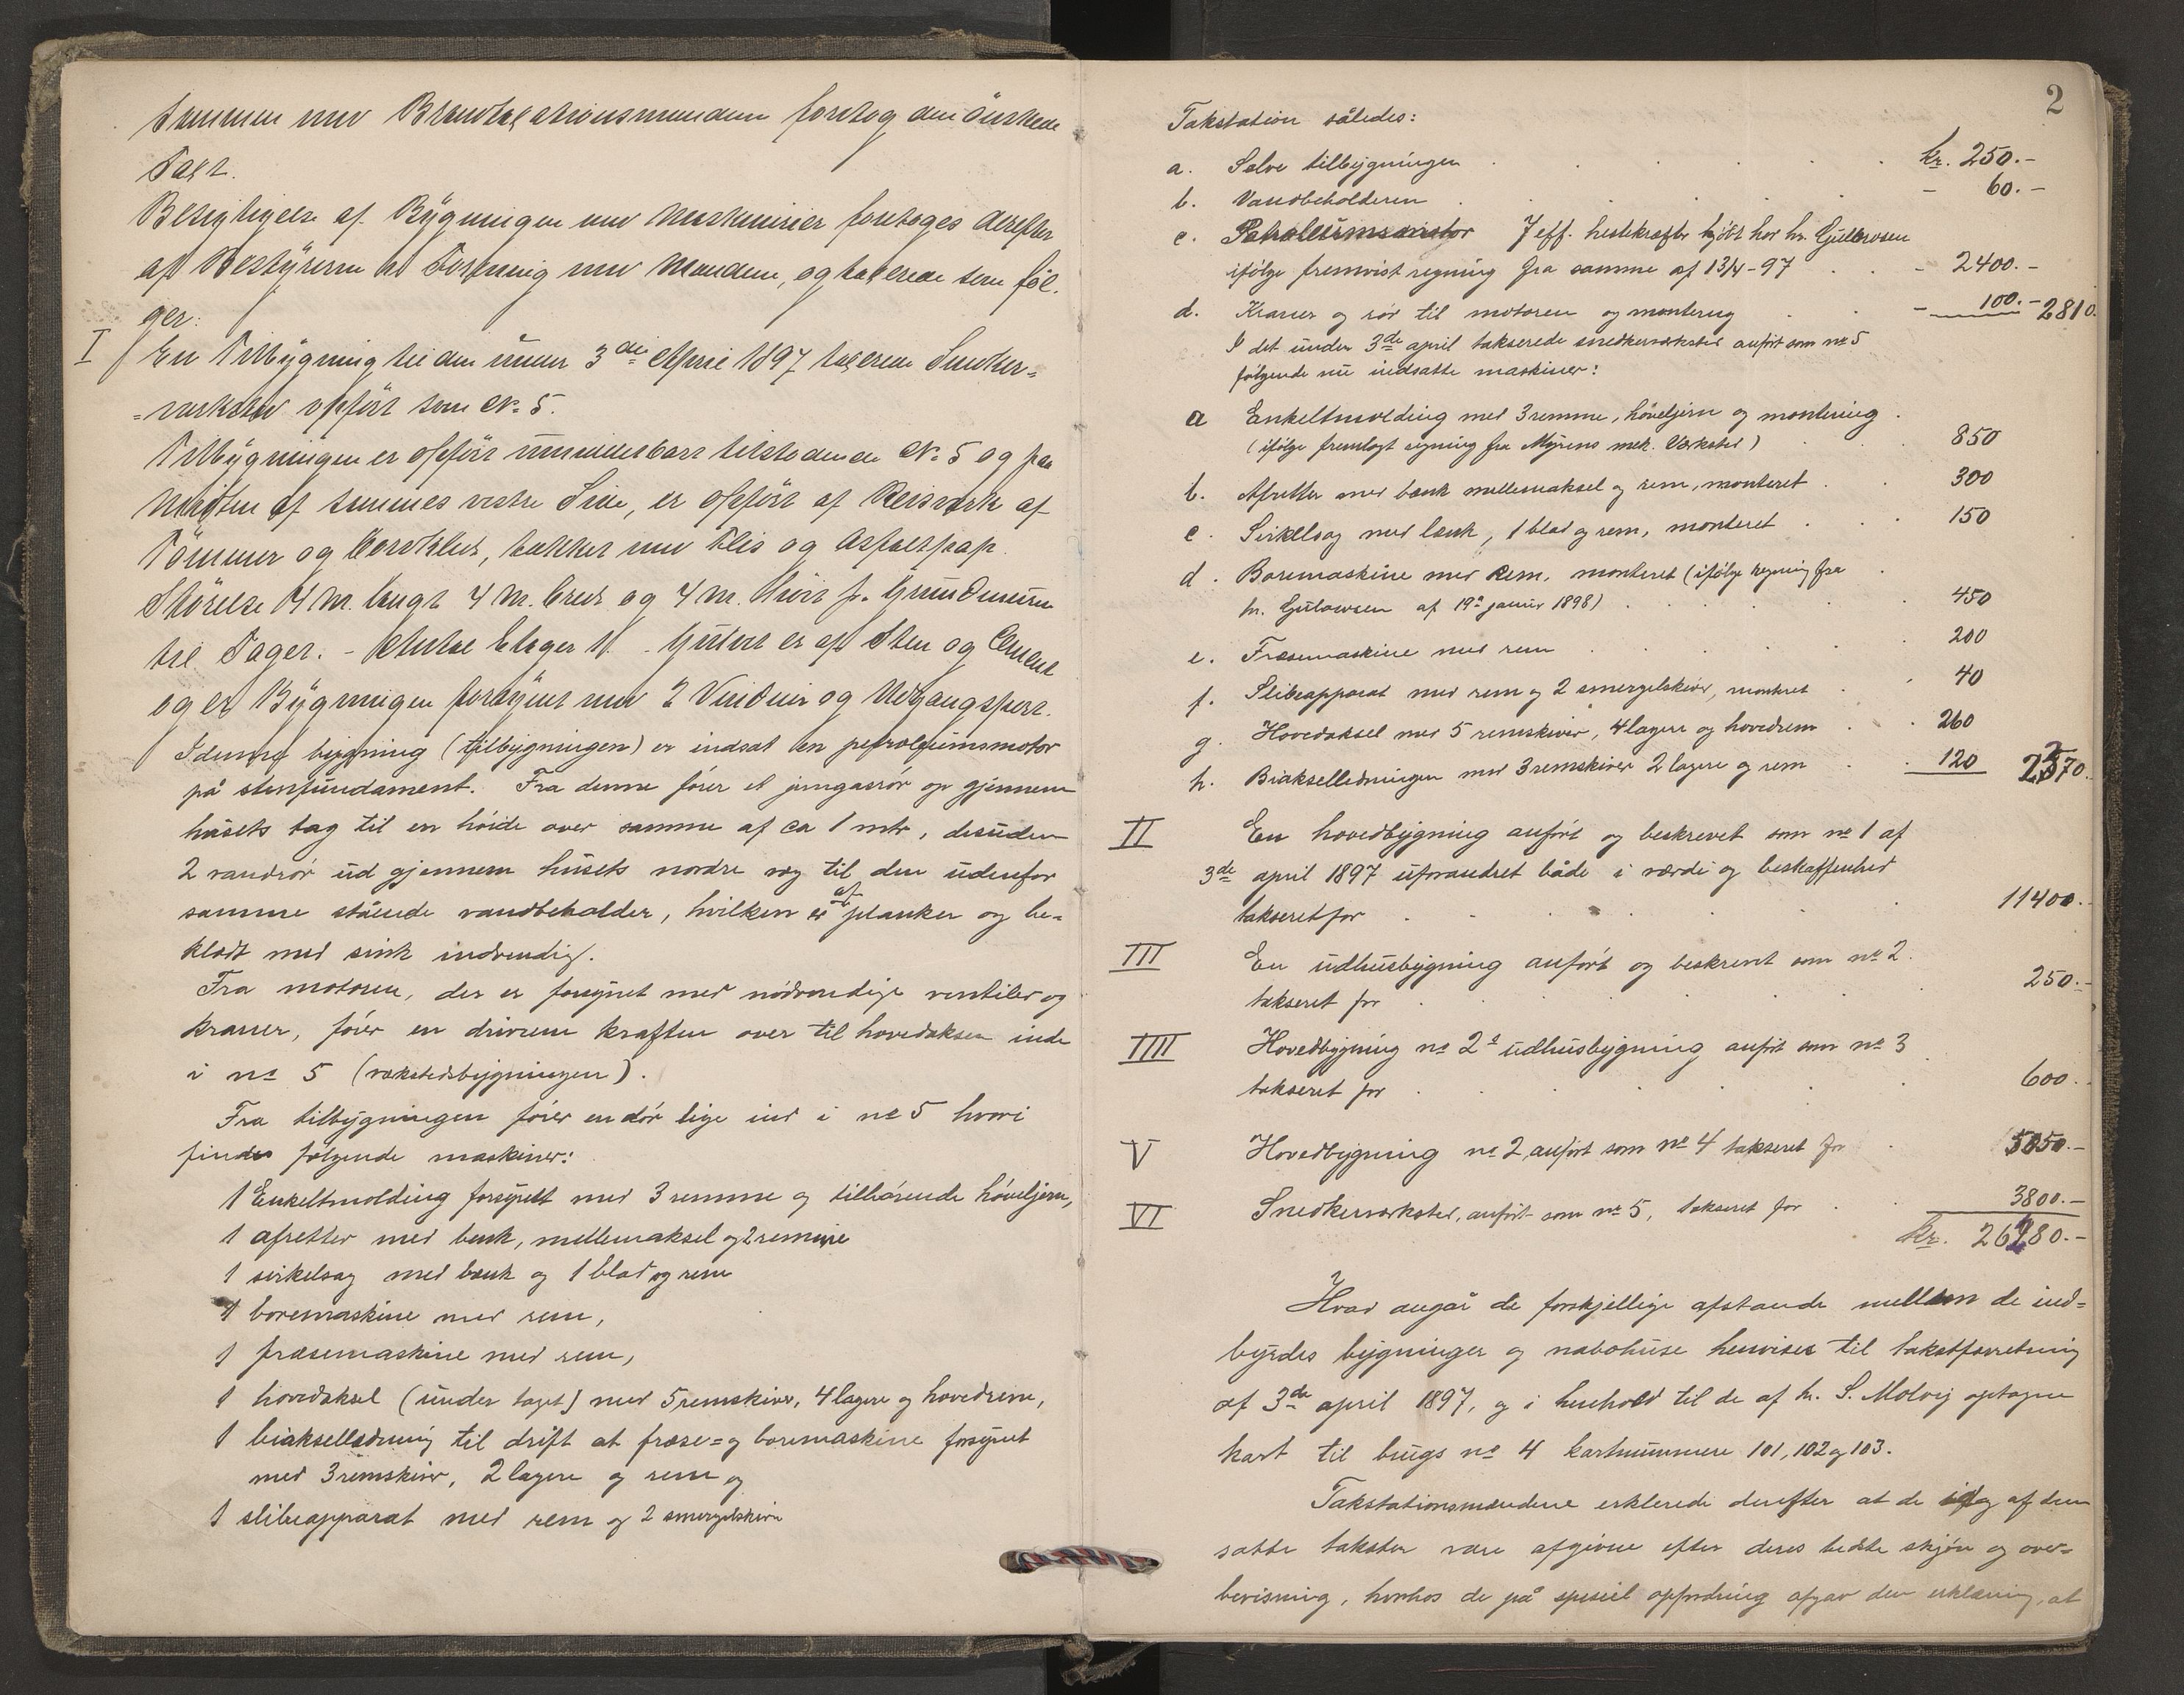 sammen med Brandtaxationsmændene foretog den önskede
Taxt.
Besigtigelse af Bygningen med Maskinerier foretoges derefter
af Bestyreren i Forening med Mændene, og taxerede som föl-
ger:
I En Tilbygning til den under 3die April 1897 taxerede Snedker=
=værksted opfört som No 5.
Tilbygningen er opfört umiddelbart tilstødende No 5 og paa
Midten af sammes vestre Side, er opfört af Reisværk af
Tömmer og bordklæd, tækket med Flis og Asfaltpap.
Störelse 4 M. længt 4 M. bred og 4 M. Höit fr. Grundmuren
til Taget. - Antal Etager 1. - Gulvet er af Sten og Cement
og er Bygningen forsynet med 2 Vinduer og Udgangsport.
I denne bygning (tilbygningen) er indsat en petroleumsmotor
på stenfundament. Fra denne fører et jerngasrör op gjennem
husets tag til en höide over samme af ca 1 mtr, desuden
2 vandrör ud gjennem husets nordre væg til den udenfor
samme stående vandbeholder, hvilken er af planker og be-
klædt med sink indvendig.
Fra motoren, der er forsynet med nödvendige ventiler og
kraner, förer en drivrem kraften over til hovedaksen inde
i no 5 (værkstedsbygningen).
Fra tilbygningen förer en dör lige ind i no 5 hvori
findes fölgende maskiner:
1 Enkeltmolding forsynet med 3 remme og tilhörende höveljern,
1 afretter med benk, mellemaksel og 2 remme
1 sirkelsag med bænk og 1 blad og rem
1 boremaskine med rem,
1 fræsemaskine med rem,
1 hovedaksel (under taget) med 5 remskiver, 4 lagere og hovedrem,
1 biakselledning til drift at fræse= og boremaskine forsynet
med 3 remskiver, 2 lagere og rem og
1 slibeapparat med rem og 2 smergelskiver
2
Takstation således:
a. Selve tilbygningen kr. 250.-
b. Vandbeholderen - 60.-
c. Petroleumsmotor 7 eff. hestekræfter kjöbt hos hr. Gulowsen
ifölge fremvist regning fra samme af 13/4-97 - 2400.-
d. Kraner og rör til motoren og montering - 100.- 2810.
I det under 3de april takserede snedkerværksted anfört som no 5
fölgende nu indsatte maskiner:
a Enkeltmolding med 3 remme, höveljern og montering
(ifölge fremlagt regning fra Myrens mek. Værksted) 850
b. Afretter med bænk mellemaksel og rem, monteret 300
c. Sirkelsag med bænk, 1 blad og rem, monteret 150
d. Boremaskine med rem, monteret (ifölge regning fra
hr. Gulowsen af 19de januar 1898) 450
e. Fræsemaskine med rem 200
f. Slibeapparat med rem og 2 smergelskiver, monteret 40
g. Hovedaksel med 5 remskiver, 4 lagere og hovedrem 260
h. Biakselledningen med 3 remskiver 2 lagere og rem 120 2370.
II En hovedbygning anfört og beskrevet som no 1 af
3de april 1897 uforandret både i værdi og beskaffenhed
takseret for 11400.-
III En udhusbygning anfört og beskrevet som no 2.
takseret for 250.-
IIII Hovedbygning no 2s udhusbygning anfört som no 3
takseret for 600.-
V Hovedbygning no 2, anfört som no 4 takseret for 5050.-
VI Snedkerværksted, anfört som no 5, takseret for 3800.-
kr. 26280.-
Hvad angår de forskjellige afstande mellem de ind=
byrdes bygninger og nabohuse henvises til takstforretning
af 3de april 1897, og i henhold til de af hr. S. Molvig optagne
kart til brugs no 4 kartnummere 101, 102 og 103.
Takstationsmændene erklærede derefter at de idag af dem
satte takster være afgivne efter deres bedste skjön og over=
bevisning, hvorhos de på spesiel opfordring afgav den erklæring, at